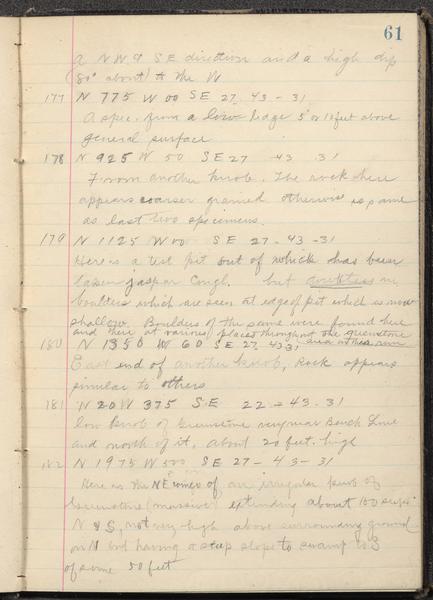 61
a NW & SE direction and a high dip
(80° about) to the N
177 N 775 W 00 SE 27 - 43 - 31
A spec. from a low ledge 5 or 10 feet above
general surface
178 N 925 W 50 SE 27 43 31
From another knob. The rock here
appears coarser grained otherwise is same
as last two specimens.
179 N 1125 W 00 SE 27 - 43 - 31
Here is a test pit out of which has been
taken jaspar Congl. but doubtless in
boulders which are seen at edge of pit which is now
shallow. Boulders of the same were found here
and there at various places throughout the greenstone
area in this run
180 N 1350 W 60 SE 27 43 31
East end of another knob, Rock appears
similar to others
181 N 20 W 375 SE 22 - 43 - 31
low knob of Greenstone very near Bench Line
and north of it, about 20 feet high
182 N 1975 W 500 SE 27 - 43 - 31
Here is the NE corner of an irregular knob of
Greenstone (massive) extending about 100 steps
N & S, not very high above surrounding ground
on N but having a steep slope to swamp to S
of some 50 feet